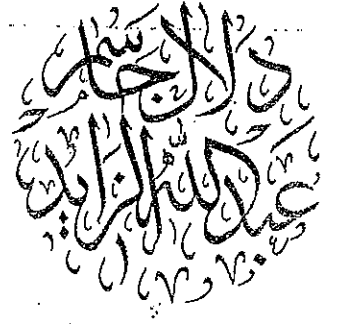 دلال جاسم
عبدالله الزايد